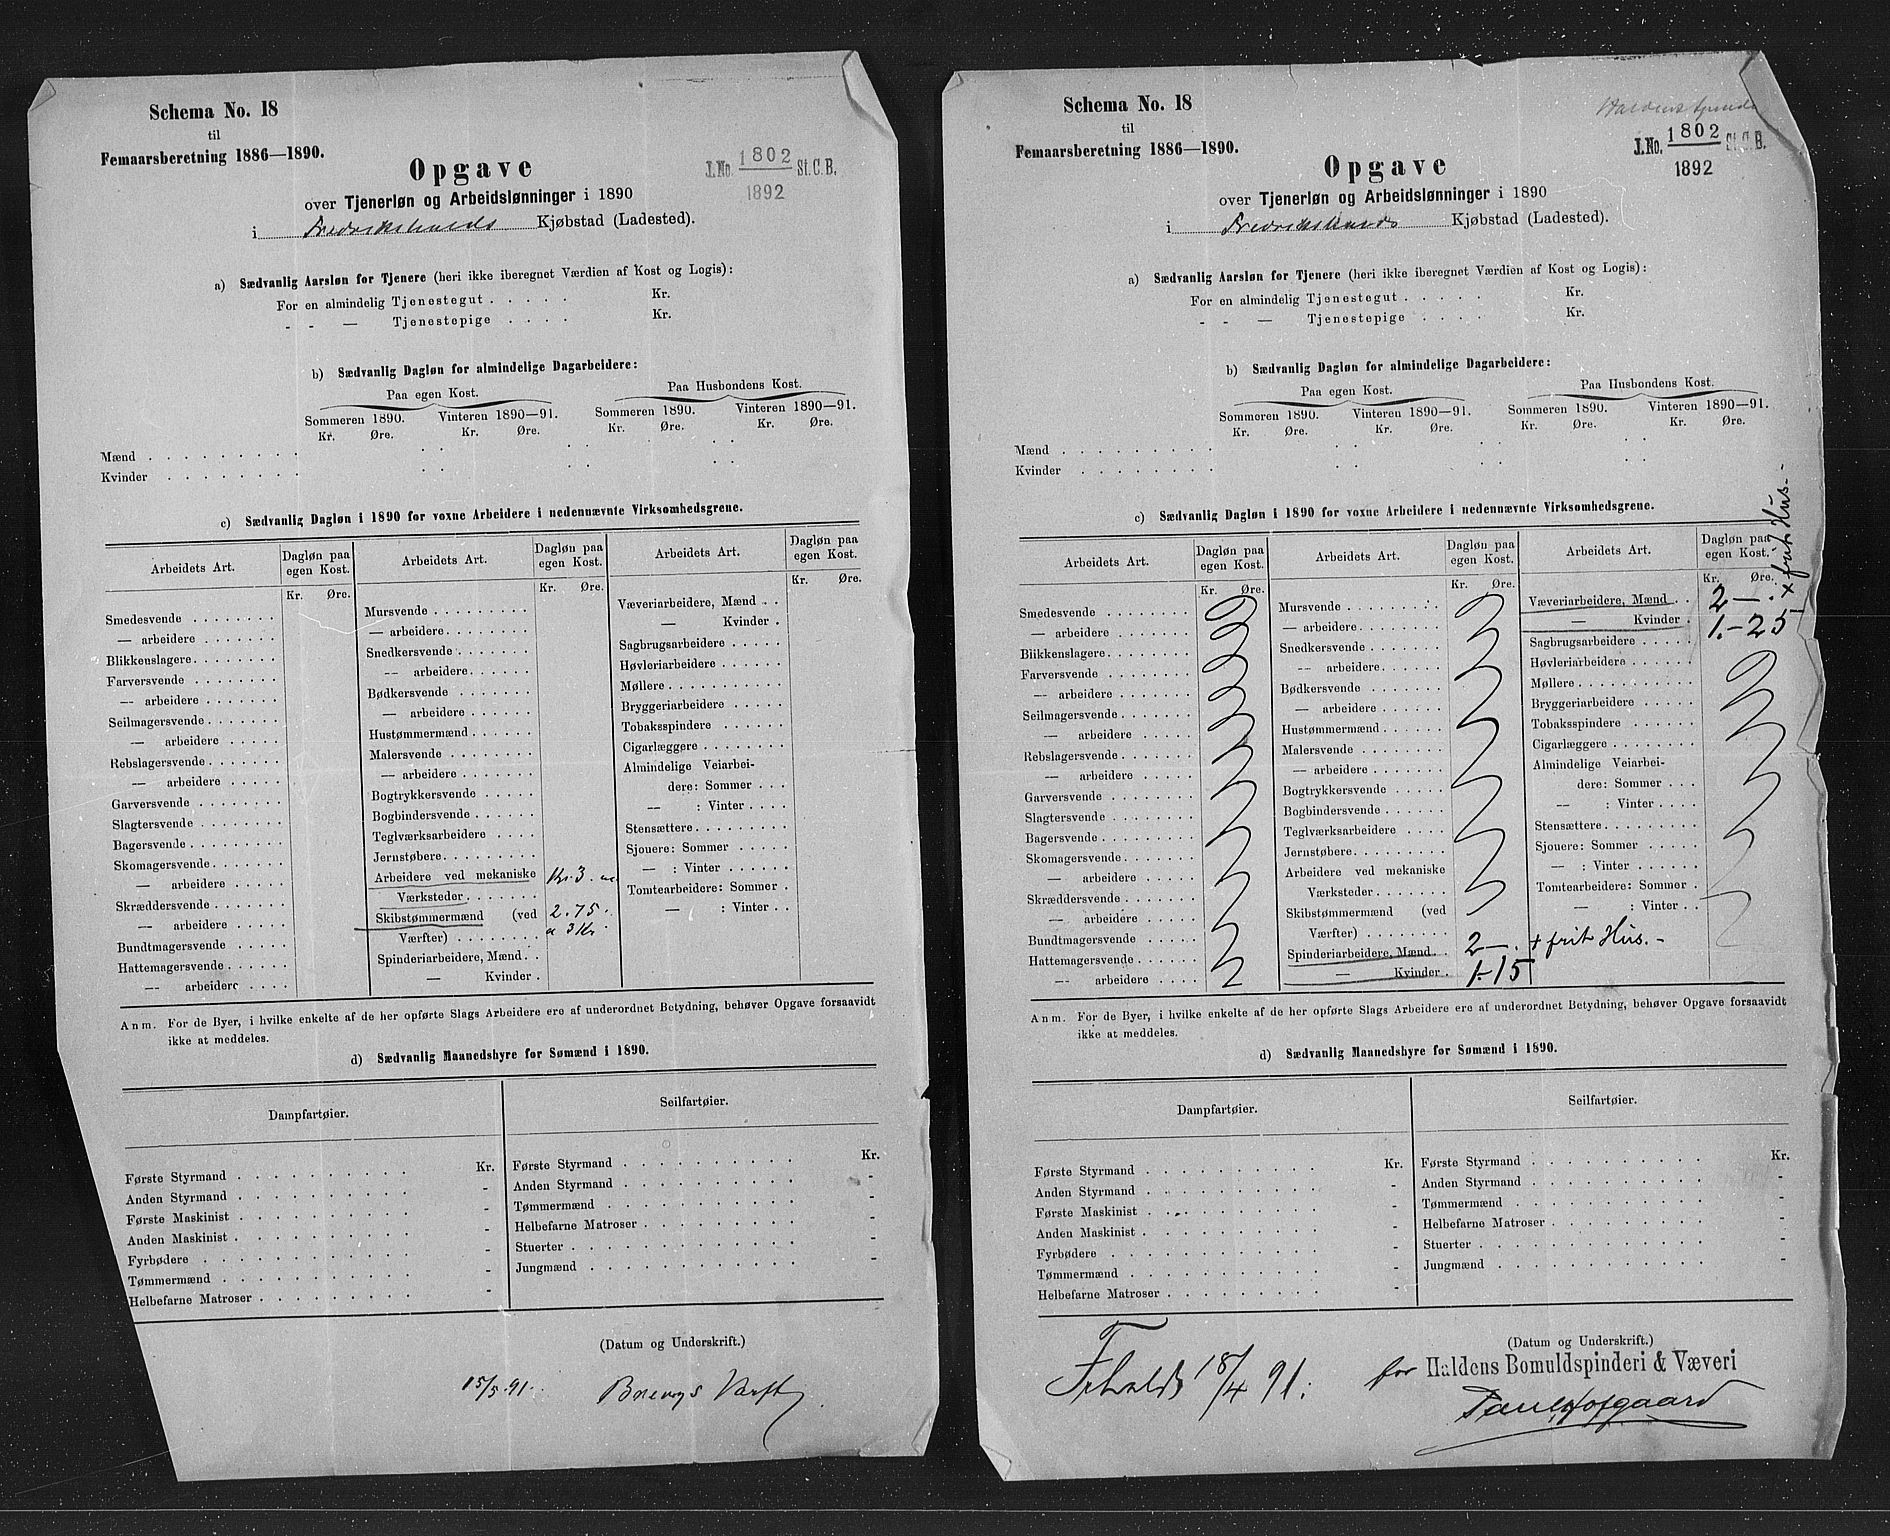 Schema No. 18
til
Femaarsberetning 1886—1890.
Opgave
J.No. 1802 St.C.B.
1892
over Tjenerløn og Arbeidslønninger i 1890
i Fredrikshalds Kjøbstad (Ladested).
a) Sædvanlig Aarsløn for Tjenere (heri ikke iberegnet Værdien af Kost og Logis):
For en almindelig Tjenestegut . . . . . Kr.
- - — Tjenestepige . . . . Kr.
b) Sædvanlig Dagløn for almindelige Dagarbeidere:
Paa egen Kost. Paa Husbondens Kost.
Sommeren 1890. Vinteren 1890—91. Sommeren 1890. Vinteren 1890—91.
Kr. Øre. Kr. Øre. Kr. Øre. Kr. Øre.
Mænd . . . . . . . . .
Kvinder . . . . . . . .
c) Sædvanlig Dagløn i 1890 for voxne Arbeidere i nedennævnte Virksomhedsgrene.
Arbeidets Art. Dagløn paa egen Kost.
Kr. Øre.
Smedesvende
— arbeidere
Blikkenslagere
Farversvende
— arbeidere
Seilmagersvende
— arbeidere
Rebslagersvende
— arbeidere
Garversvende
Slagtersvende
Bagersvende
Skomagersvende
— arbeidere
Skræddersvende
— arbeidere
Bundtmagersvende
Hattemagersvende
— arbeidere
Arbeidets Art. Dagløn paa egen Kost.
Kr. Øre.
Mursvende
— arbeidere
Snedkersvende
— arbeidere
Bødkersvende
— arbeidere
Hustømmermænd
Malersvende
— arbeidere
Bogtrykkersvende
Bogbindersvende
Teglværksarbeidere
Jernstøbere
Arbeidere ved mekaniske Kr. 3.
Værksteder
Skibstømmermænd (ved 2.75.
Værfter) a 3 Kr.
Spinderiarbeidere, Mænd
— Kvinder
Arbeidets Art. Dagløn paa egen Kost.
Kr. Øre.
Væveriarbeidere, Mænd
— Kvinder
Sagbrugsarbeidere
Høvleriarbeidere
Møllere
Bryggeriarbeidere
Tobaksspindere
Cigarlæggere
Almindelige Veiarbei-
dere: Sommer
— : Vinter
Stensættere
Sjouere: Sommer
— : Vinter
Tomtearbeidere: Sommer
— : Vinter
Anm. For de Byer, i hvilke enkelte af de her opførte Slags Arbeidere ere af underordnet Betydning, behøver Opgave forsaavidt
ikke at meddeles.
d) Sædvanlig Maanedshyre for Sømænd i 1890.
Dampfartøier.
Kr.
Første Styrmand
Anden Styrmand -
Første Maskinist -
Anden Maskinist -
Fyrbødere -
Tømmermænd -
Helbefarne Matroser -
Seilfartøier.
Kr.
Første Styrmand
Anden Styrmand -
Tømmermænd -
Helbefarne Matroser -
Stuerter -
Jungmænd -
(Datum og Underskrift.)
15/5 91. Brevigs Værft
Schema No. 18
til
Femaarsberetning 1886—1890.
Haldens spinderi
Opgave
J.No. 1802 St.C.B.
1892
over Tjenerløn og Arbeidslønninger i 1890
i Fredrikshalds Kjøbstad (Ladested).
a) Sædvanlig Aarsløn for Tjenere (heri ikke iberegnet Værdien af Kost og Logis):
For en almindelig Tjenestegut . . . . . Kr.
- - — Tjenestepige . . . . Kr.
b) Sædvanlig Dagløn for almindelige Dagarbeidere:
Paa egen Kost. Paa Husbondens Kost.
Sommeren 1890. Vinteren 1890—91. Sommeren 1890. Vinteren 1890—91.
Kr. Øre. Kr. Øre. Kr. Øre. Kr. Øre.
Mænd . . . . . . . . .
Kvinder . . . . . . . .
c) Sædvanlig Dagløn i 1890 for voxne Arbeidere i nedennævnte Virksomhedsgrene.
Arbeidets Art. Dagløn paa egen Kost.
Kr. Øre.
Smedesvende
— arbeidere
Blikkenslagere
Farversvende
— arbeidere
Seilmagersvende
— arbeidere
Rebslagersvende
— arbeidere
Garversvende
Slagtersvende
Bagersvende
Skomagersvende
— arbeidere
Skræddersvende
— arbeidere
Bundtmagersvende
Hattemagersvende
— arbeidere
Arbeidets Art. Dagløn paa egen Kost.
Kr. Øre.
Mursvende
— arbeidere
Snedkersvende
— arbeidere
Bødkersvende
— arbeidere
Hustømmermænd
Malersvende
— arbeidere
Bogtrykkersvende
Bogbindersvende
Teglværksarbeidere
Jernstøbere
Arbeidere ved mekaniske
Værksteder
Skibstømmermænd (ved
Værfter)
Spinderiarbeidere, Mænd 2 —. + frit Hus. -
— Kvinder 1.-15
Arbeidets Art. Dagløn paa egen Kost.
Kr. Øre.
Væveriarbeidere, Mænd 2 —. + frit Hus. -
— Kvinder 1.-25
Sagbrugsarbeidere
Høvleriarbeidere
Møllere
Bryggeriarbeidere
Tobaksspindere
Cigarlæggere
Almindelige Veiarbei-
dere: Sommer
— : Vinter
Stensættere
Sjouere: Sommer
— : Vinter
Tomtearbeidere: Sommer
— : Vinter
Anm. For de Byer, i hvilke enkelte af de her opførte Slags Arbeidere ere af underordnet Betydning, behøver Opgave forsaavidt
ikke at meddeles.
d) Sædvanlig Maanedshyre for Sømænd i 1890.
Dampfartøier.
Kr.
Første Styrmand
Anden Styrmand -
Første Maskinist -
Anden Maskinist -
Fyrbødere -
Tømmermænd -
Helbefarne Matroser -
Seilfartøier.
Kr.
Første Styrmand
Anden Styrmand -
Tømmermænd -
Helbefarne Matroser -
Stuerter -
Jungmænd -
(Datum og Underskrift.)
Frhald 18/4 91. for Haldens Bomuldspinderi & Væveri
Paul Hofgaard